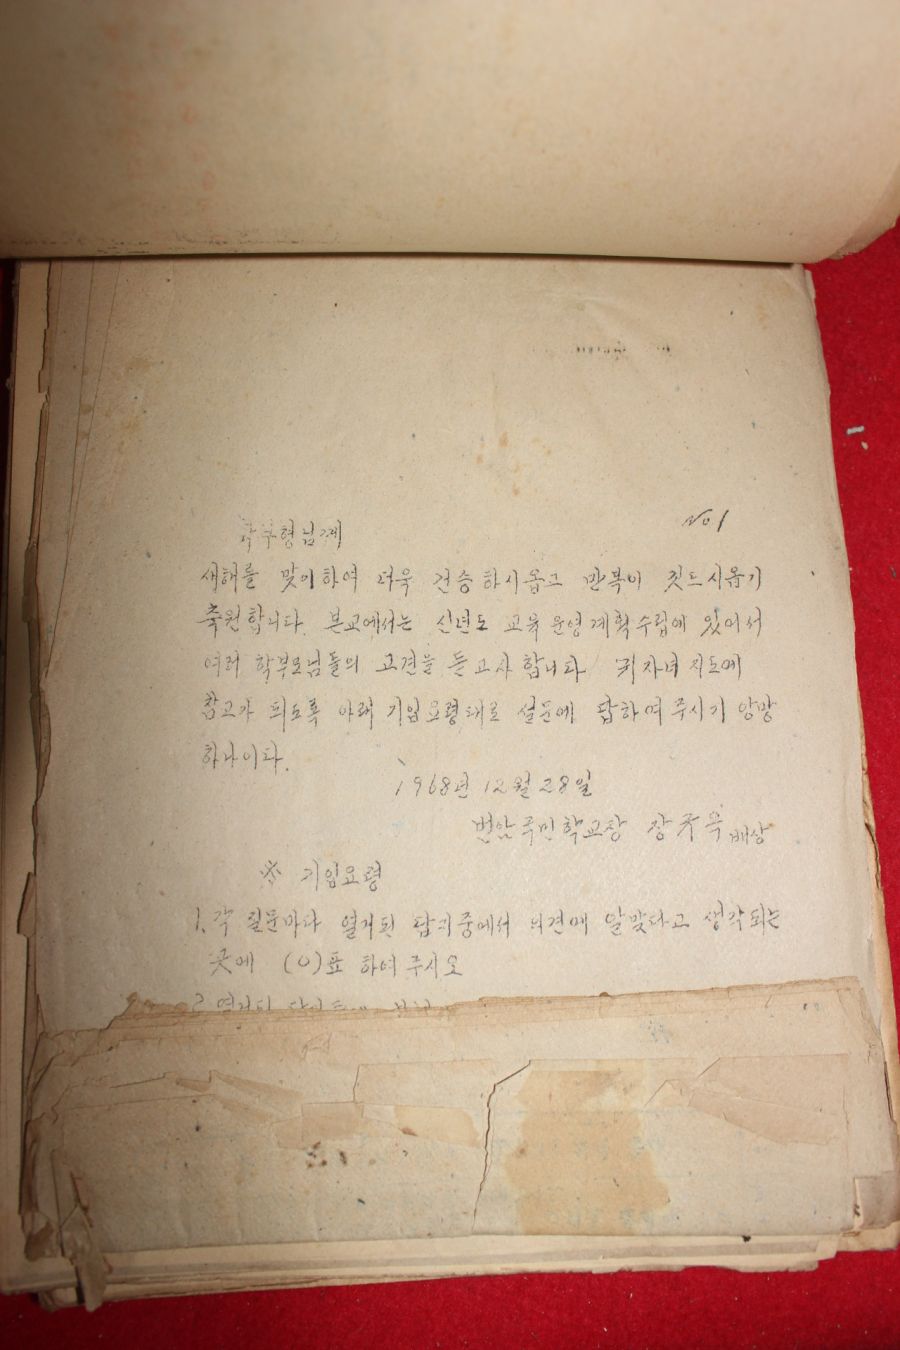 No 1
학부형님께
새해를 맞이하여 더욱 건승하시옵고 만복이 깃드시옵기
축원합니다. 본교에서는 신년도 교육운영계획수립에 있어서
여러 학부모님들의 고견을 듣고사 합니다. 귀자녀 지도에
참고가 되도록 아래 기입요령대로 설문에 답하여 주시기 앙망
하나이다.
1968년 12월 28일
번암국민학교장 장 배상
※ 기입요령
1. 각 질문마다 열거된 답지중에서 의견에 알맞다고 생각되는
곳에 (○)표 하여 주시오
2.